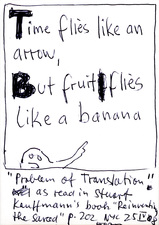 Time flies like an
arrow,
But fruit flies
like a banana
"Problem of Translation"
as read in Stuart
Kauffmann's book "Reinventing
the Sacred" p. 202 NYC 25